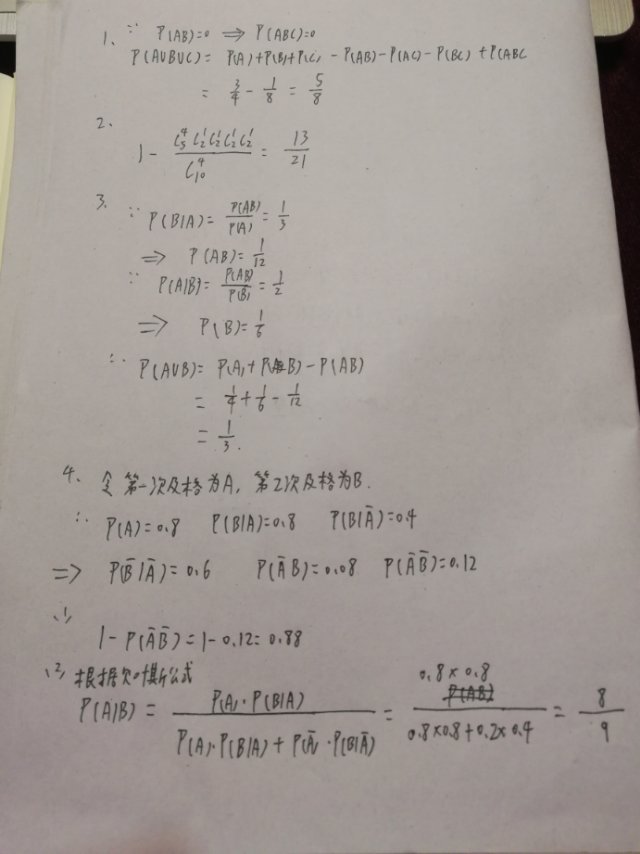 1、 ∵ P(AB)=0 ⇒ P(ABC)=0
P(A∪B∪C)= P(A)+P(B)+P(C) - P(AB)-P(AC)-P(BC)+P(ABC
= 3/4 - 1/8 = 5/8
2、
1 - C_5^4 C_2^1 C_2^1 C_2^1 C_2^1 / C_10^4 = 13/21
3、 ∵ P(B|A)= P(AB)/P(A) = 1/3
⇒ P(AB)= 1/12
∵ P(A|B)= P(AB)/P(B) = 1/2
⇒ P(B)= 1/6
∴ P(A∪B)= P(A)+P(B)-P(AB)
= 1/4 + 1/6 - 1/12
= 1/3.
4、 令第一次及格为A, 第2次及格为B.
∴ P(A)=0.8 P(B|A)=0.8 P(B|Ā)=0.4
⇒ P(B̄|Ā)=0.6 P(ĀB)=0.08 P(ĀB̄)=0.12
(1)
1-P(ĀB̄)=1-0.12=0.88
(2) 根据贝叶斯公式
P(A|B) = P(A)·P(B|A) / P(A)·P(B|A)+P(Ā)·P(B|Ā) = 0.8×0.8 / 0.8×0.8+0.2×0.4 = 8/9